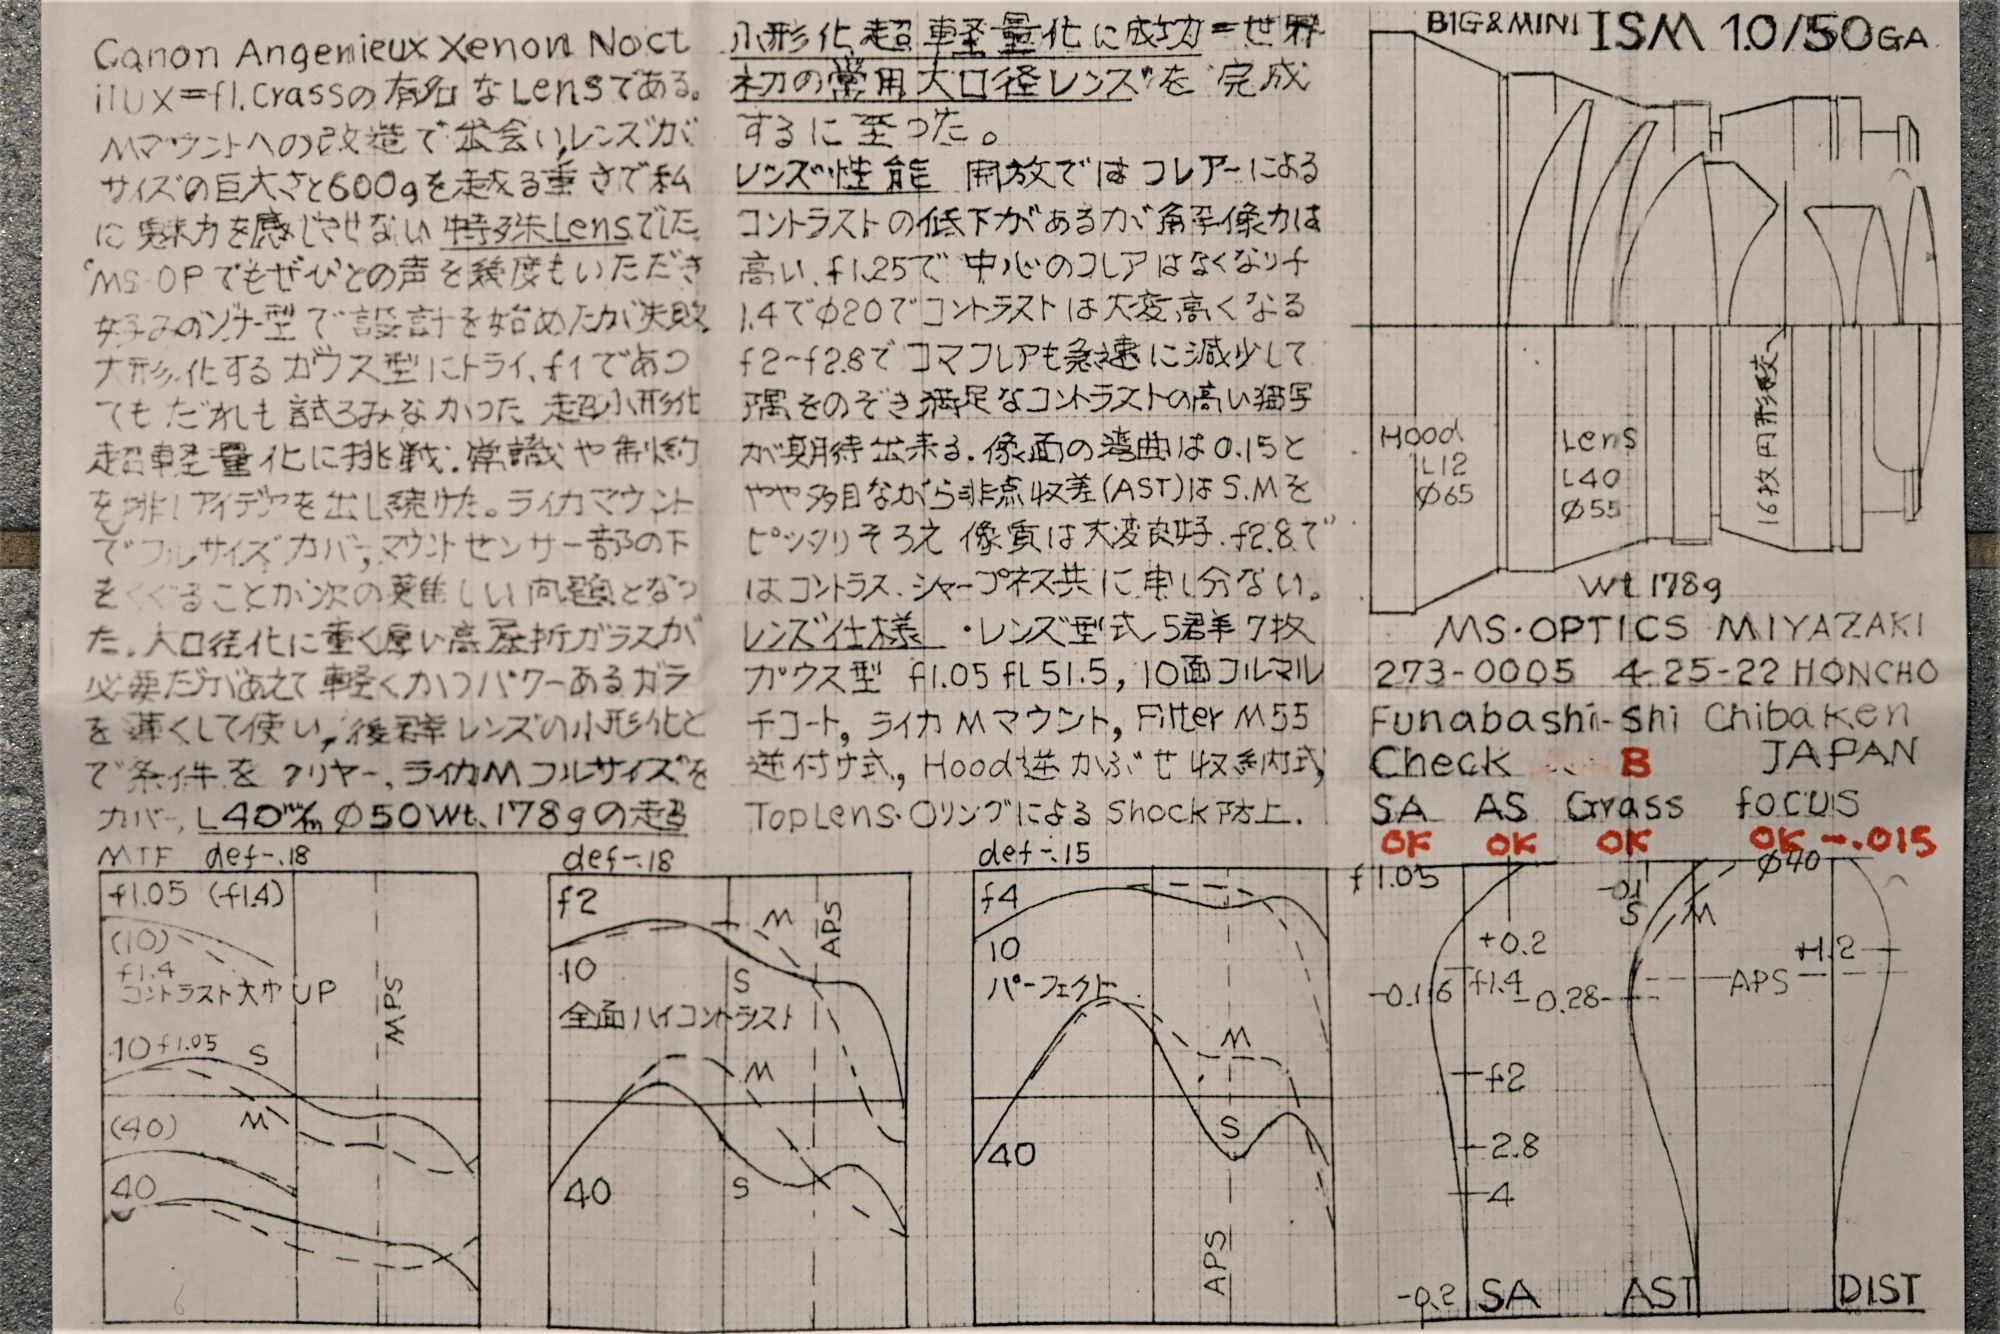 Canon Angenieux Xenon Noct
ilux=f1.Crassの有名なLensである。
Mマウントへの改造で出会い,レンズが
サイズの巨大さと600gを越える重さで私
に魅力を感じさせない特殊Lensでした
MS-OPでもぜひとの声を幾度もいただき
好みのゾナー型で設計を始めたが失敗
大形化するガウス型にトライ、f1であつ
てもだれも試ろみなかつた 超小形化
超軽量化に挑戦. 常識や制約
を排しアイデアを出し続けた。ライカマウント
でフルサイズカバー,マウントセンサー部の下
をくぐることが次の難しい問題となつ
た. 大口径化に重く厚い高屈折ガラスが
必要だがあえて軽くかつパワーあるガラ
を薄くして使い, 後群レンズの小形化と
で条件をクリヤー、ライカMフルサイズを
カバー, L40m/m Ø50Wt.178gの超
小形化超軽量化に成功=世界
初の常用大口径レンズ"を完成
するに至つた。
レンズ性能 開放ではフレアーによる
コントラストの低下があるが解像力は
高い. f1.25で中心のフレアはなくなりf
1.4でØ20でコントラストは大変高くなる
f2~f2.8でコマフレアも急速に減少して
隅をのぞき満足なコントラストの高い描写
が期待出来る. 像面の湾曲は0.15と
やや多目ながら非点収差(AST)はS.Mを
ピッタリそろえ 像質は大変良好. f2.8で
はコントラス、シャープネス共に申し分ない。
レンズ仕様 ・レンズ型式 5群7枚
ガウス型 f1.05 fL51.5, 10面フルマル
チコート, ライカMマウント, Filter M55
逆付け式, Hood逆かぶせ収納式,
TopLens・OリングによるShock防止.
BIG&MINI ISM 1.0/50GA.
Hood
L12
Ø65
Lens
L40
Ø55
16枚円形絞
Wt 178g
MS・OPTICS MIYAZAKI
273-0005 4-25-22 HONCHO
Funabashi-Shi Chibaken
Check B JAPAN
SA AS Grass focus
OK OK OK OK -.015
MTF def-.18
f1.05 (f1.4)
(10)
f1.4
コントラスト大巾UP
10 f1.05 S
M
(40)
40
MPS
def-.18
f2
10
M
S
APS
全面ハイコントラスト
M
40
S
def-.15
f4
10
パーフェクト
M
S
40
APS
f1.05
+0.2
-0.16
f1.4
f2
2.8
4
-0.2 SA
-0.1
S M
-0.28
APS
AST
Ø40
+1.2
DIST